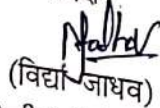 (विद्या जाधव)